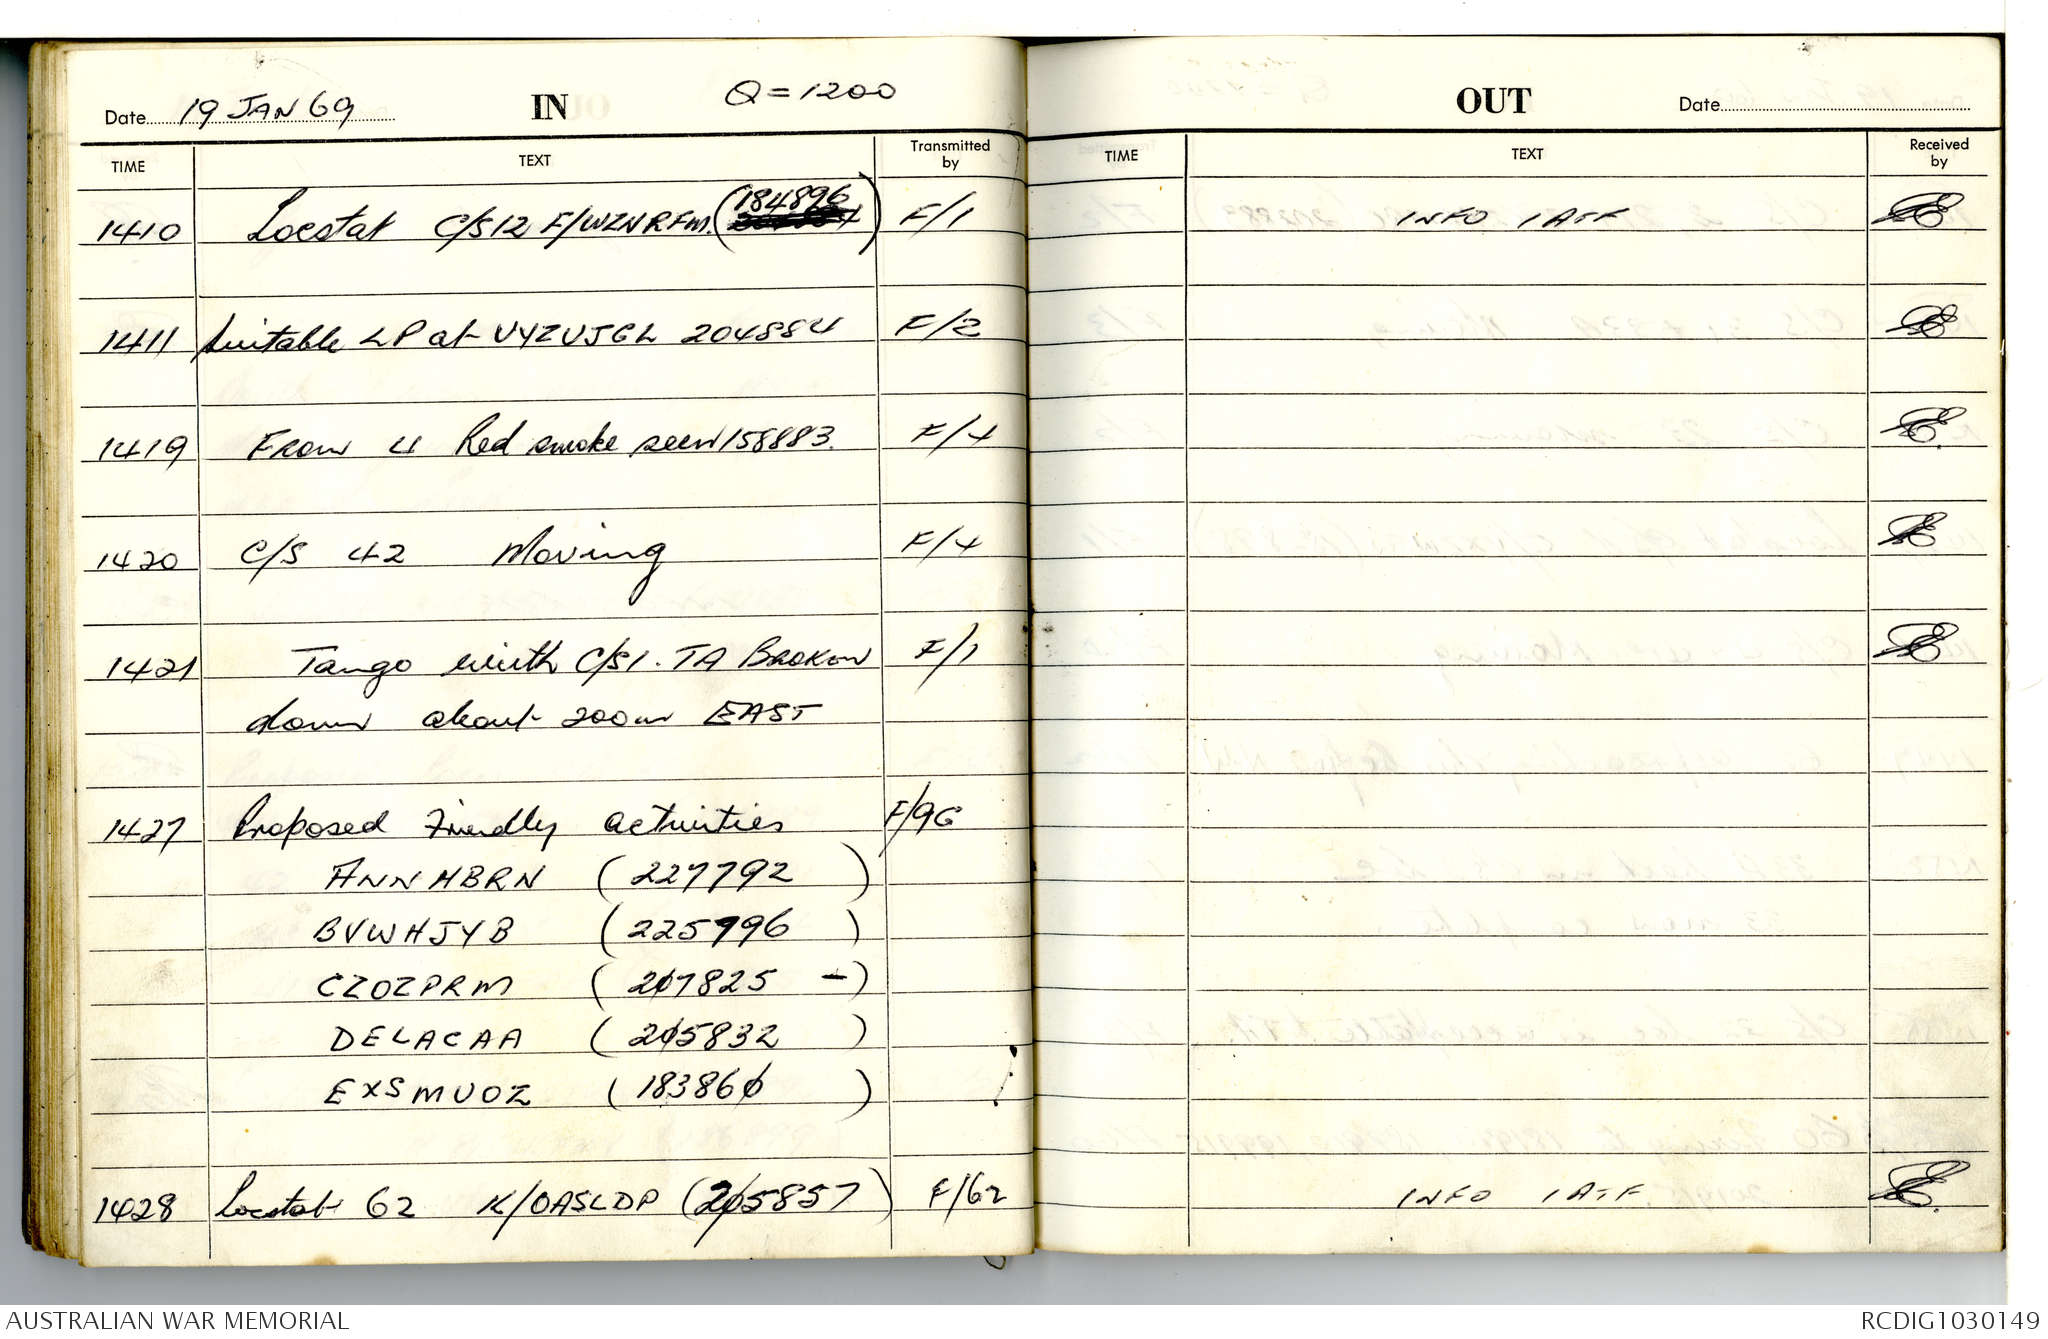 Date 19 JAN 69 IN Q = 1200
TIME TEXT Transmitted by
1410 Locstat C/S 12 F/WZNRFM. (184896) F/1
1411 Suitable LP at VYZVJGL 204884 F/2
1419 From 4 Red smoke seen 158883. F/4
1420 C/S 42 Moving F/4
1421 Tango with C/S 1. TA Broken F/1
down about 200m EAST
1427 Proposed Friendly activities F/9G
ANNHBRN (227792)
BVWHJYB (225796)
CZOZPRM (207825 -)
DELACAA (205832)
EXSMUOZ (183860)
1428 Locstat 62 K/OASLDP (205857) F/62
OUT Date
TIME TEXT Received by
INFO 1ATF
INFO 1ATF
AUSTRALIAN WAR MEMORIAL
RCDIG1030149